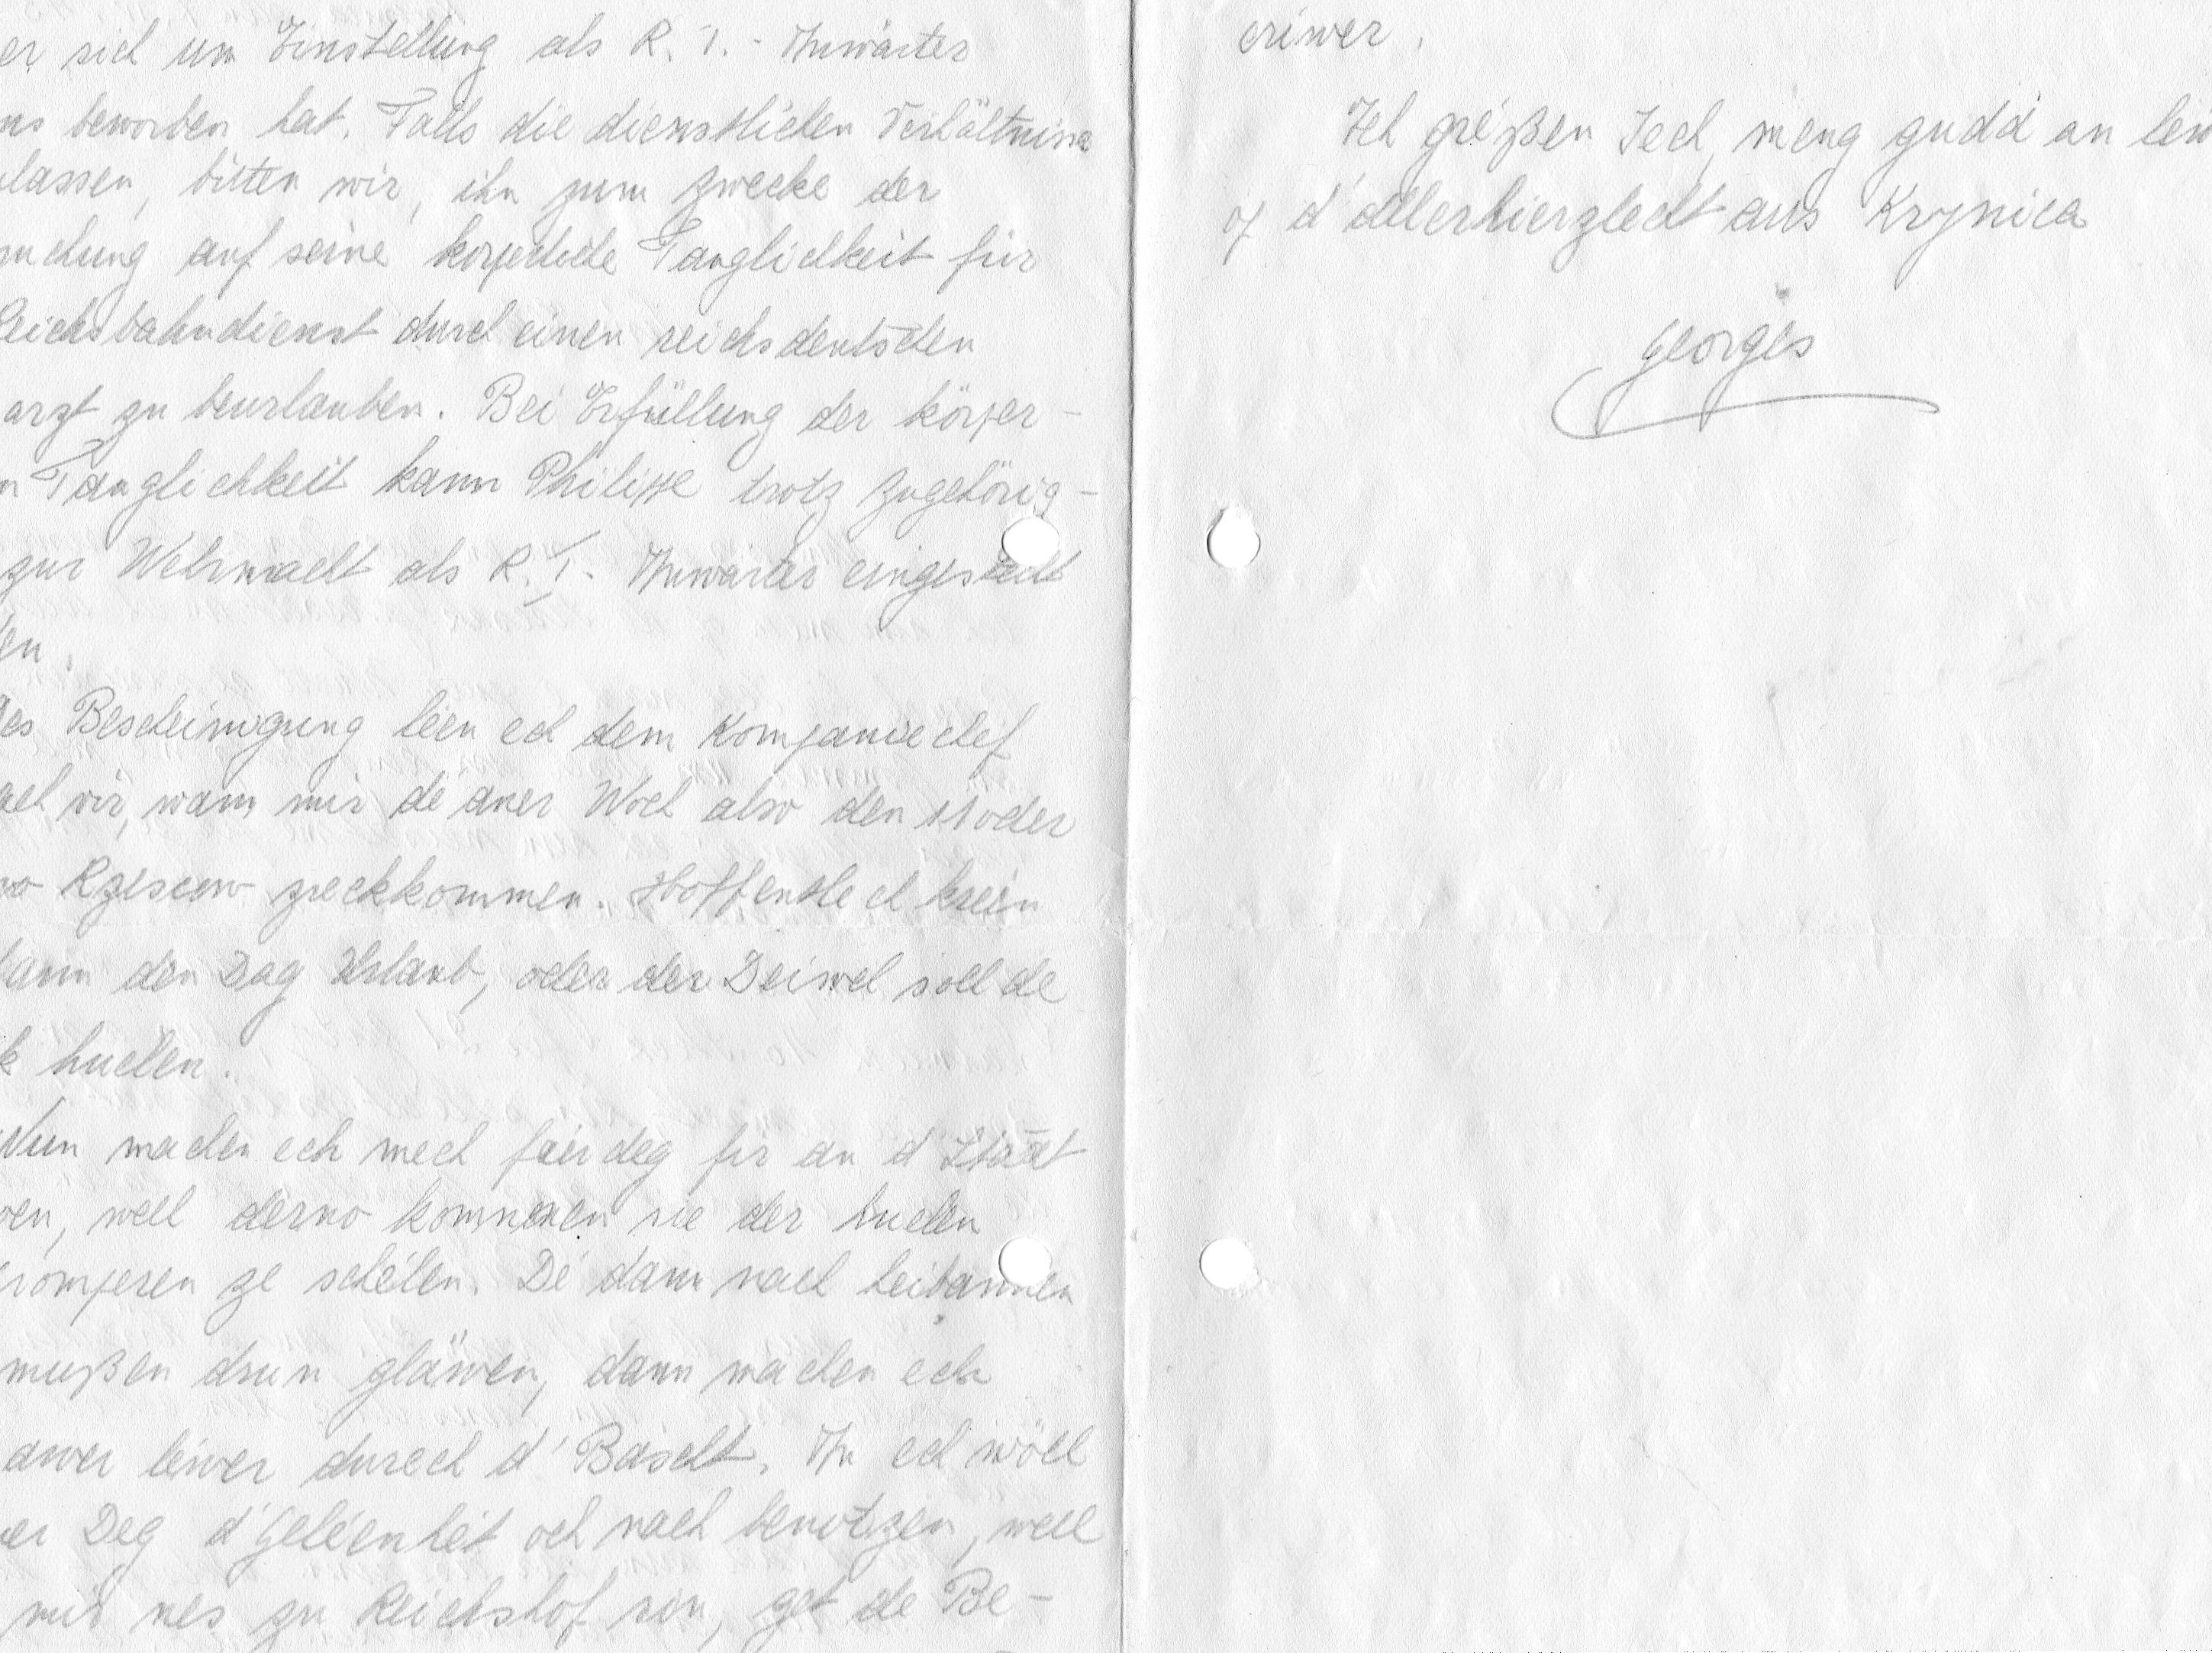 er sich um Einstellung als R. I. - Anwärter
ns beworben hat. Falls die dienstlichen Verhältnisse
lassen, bitten wir, ihn zum Zwecke der
uchung auf seine körperliche Tauglichkeit für
Reichsbahndienst durch einen reichsdeutschen
arzt zu beurlauben. Bei Erfüllung der körper-
n Tauglichkeit kann Philippe trotz Zugehörig-
zur Wehrmacht als R. I. - Anwärter eingestellt
en.
es Bescheinigung léen ech dem Kompaniechef
ach vir, wann mir dé aner Woch also den 11 oder
no Rzeszow zreckkommen. Hoffentlech kréien
dann den Dag Urlaub, oder der Deiwel soll de
k huelen.
Nun machen ech mech fäerdeg fir an d'Staat
oen, well derno kommen sie der huelen
romperen ze schélen. Dé dann nach beibannen
mußen drun gläwen, dann machen ech
awer léiwer durech d'Bascht. An ech wöll
er Deg d'Geléenhét och nach benotzen, well
mir nes zu Reichshof sin, get de Be-
eriwer.
Ech gréßen Iech, meng gudd an léw
op d'allerhierzlecht aus Krynica
Georges